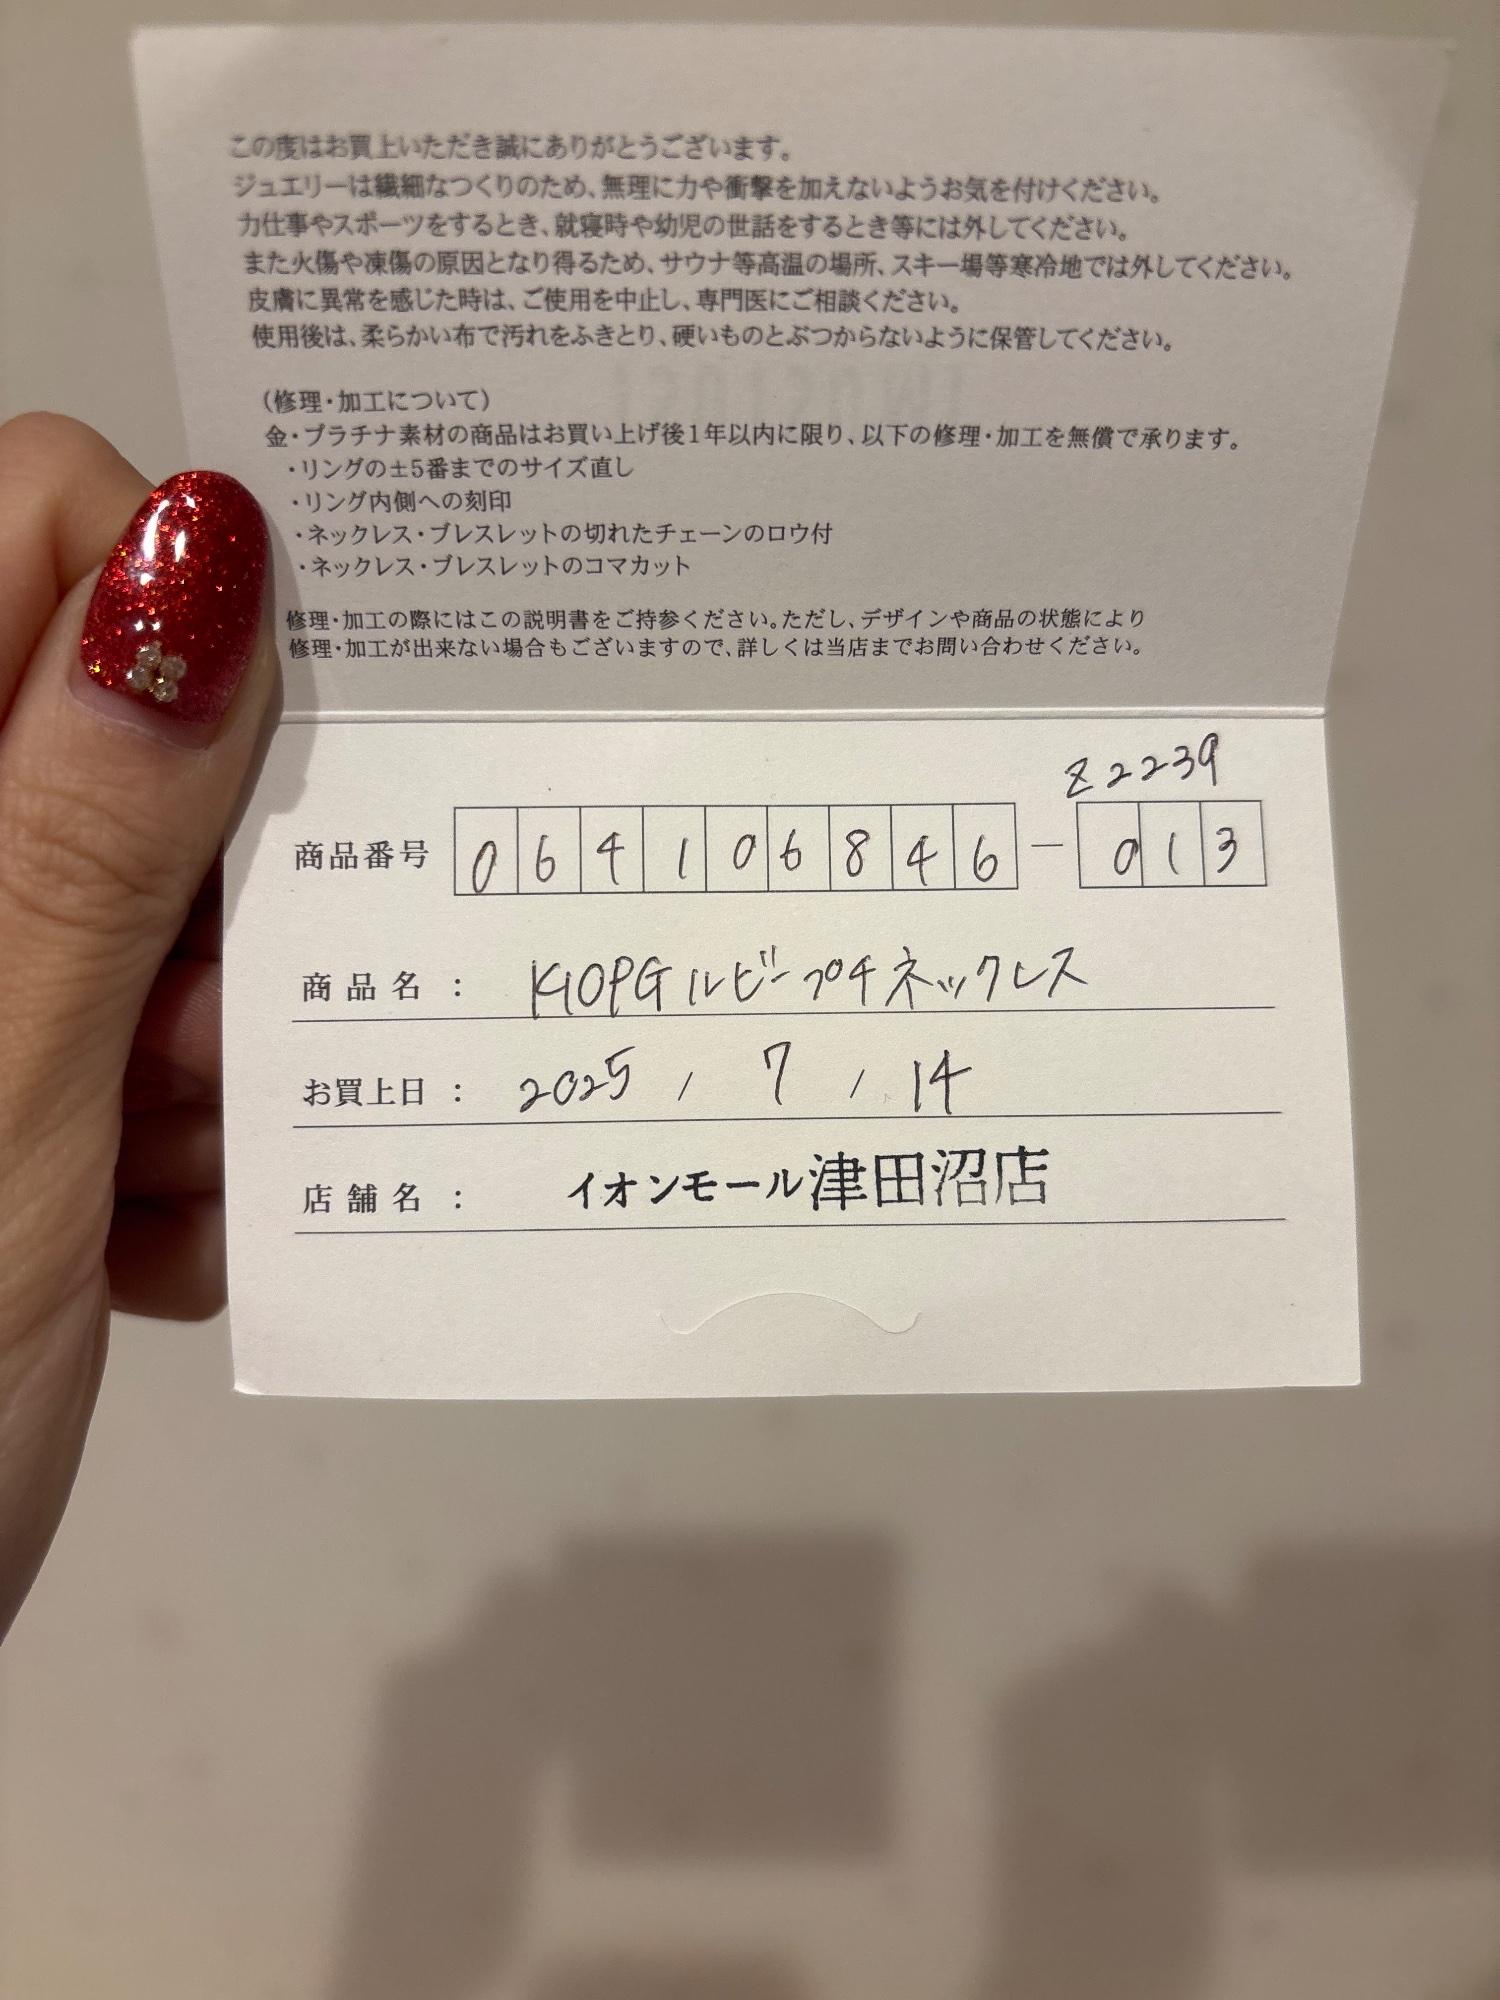 この度はお買上いただき誠にありがとうございます。
ジュエリーは繊細なつくりのため、無理に力や衝撃を加えないようお気を付けください。
力仕事やスポーツをするとき、就寝時や幼児の世話をするとき等には外してください。
また火傷や凍傷の原因となり得るため、サウナ等高温の場所、スキー場等寒冷地では外してください。
皮膚に異常を感じた時は、ご使用を中止し、専門医にご相談ください。
使用後は、柔らかい布で汚れをふきとり、硬いものとぶつからないように保管してください。
(修理・加工について)
金・プラチナ素材の商品はお買い上げ後1年以内に限り、以下の修理・加工を無償で承ります。
・リングの±5番までのサイズ直し
・リング内側への刻印
・ネックレス・ブレスレットの切れたチェーンのロウ付
・ネックレス・ブレスレットのコマカット
修理・加工の際にはこの説明書をご持参ください。ただし、デザインや商品の状態により
修理・加工が出来ない場合もございますので、詳しくは当店までお問い合わせください。
Z2239
商品番号 064106846-013
商品名: K10PGルビープチネックレス
お買上日: 2025/7/14
店舗名: イオンモール津田沼店